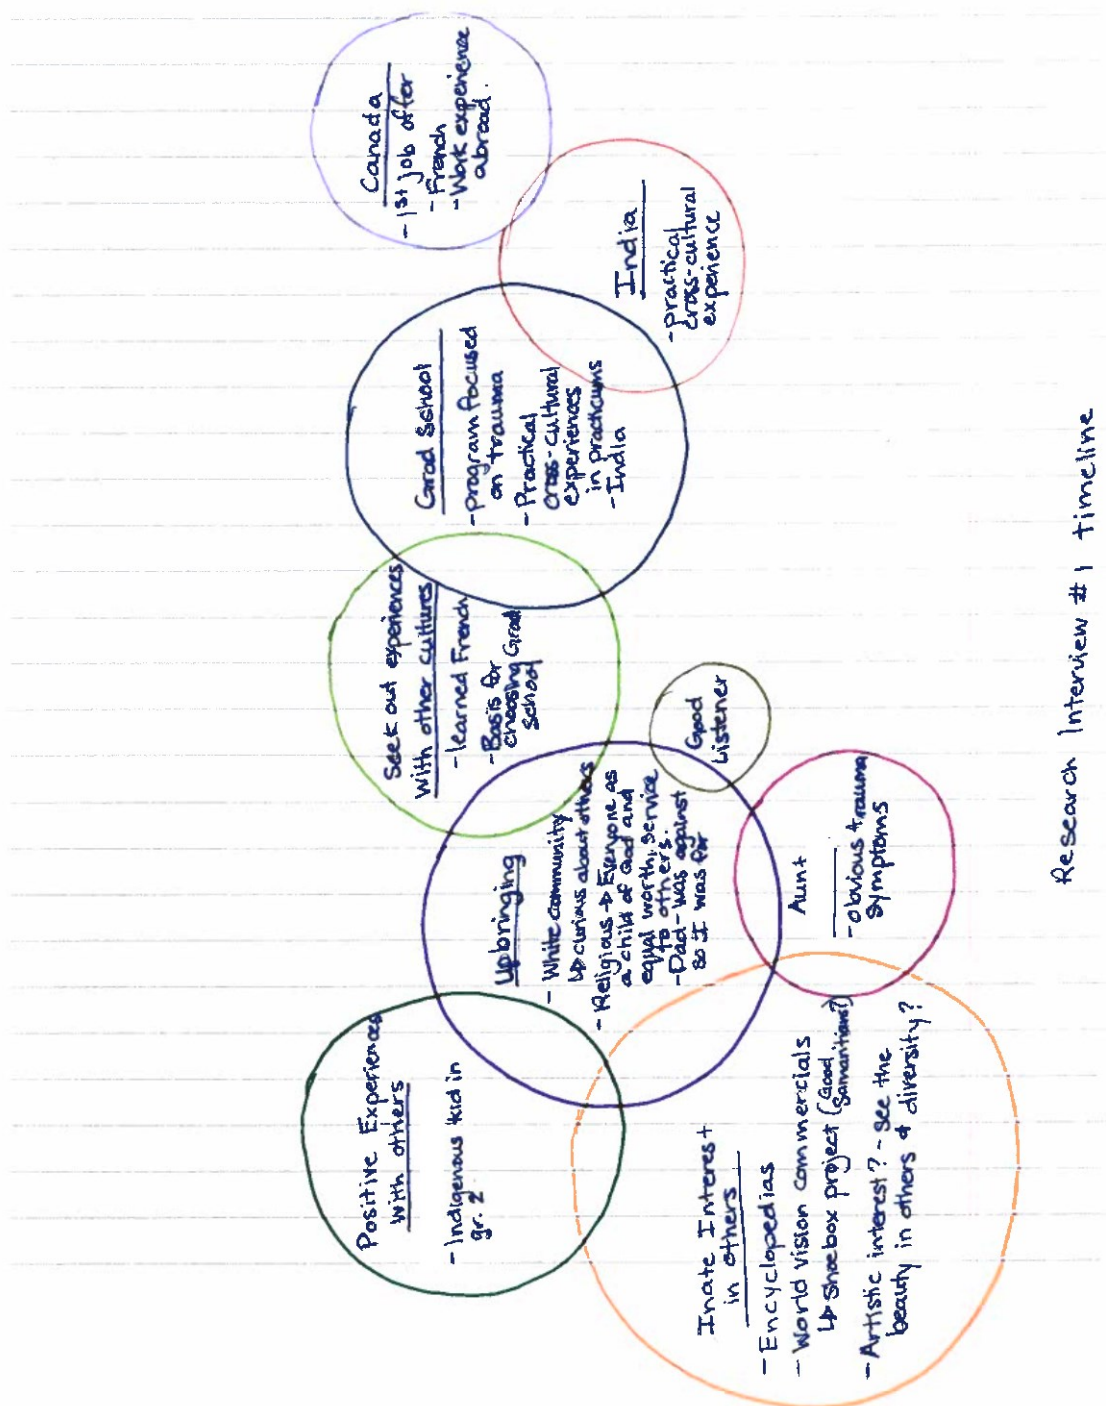 Positive Experiences
With others
- Indigenous kid in
gr. 2
Inate Interest
in others
- Encyclopedias
- World vision commercials
↳ shoebox project (Good
Samaritians?)
- Artistic interest? - see the
beauty in others & diversity?
Upbringing
- White community
↳ curious about others
- Religious → Everyone as
a child of God and
equal worth, service
to others.
- Dad - was against
so I was for
Aunt
- obvious trauma
symptoms
Good
Listener
Seek out experiences
With other cultures
- learned French
- Basis for
choosing Grad
school
Grad School
- program focused
on trauma
- Practical
cross-cultural
experiences
in practicums
- India
India
- practical
cross-cultural
experience
Canada
- 1st job offer
- French
- Work experience
abroad.
Research Interview #1 timeline